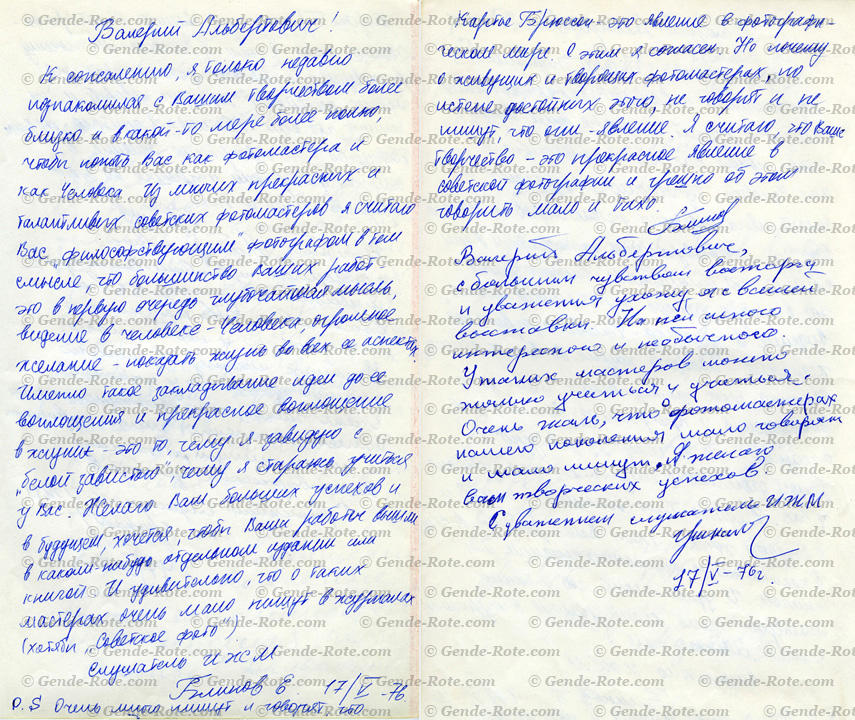 Валерий Альбертович!
К сожалению, я только недавно
познакомился с Вашим творчеством более
близко и в какой-то мере более полно,
чтобы понять Вас как фотомастера и
как Человека. Из многих прекрасных и
талантливых советских фотомастеров я считаю
Вас „философствующим" фотографом в том
смысле, что большинство Ваших работ
это в первую очередь глубочайшая мысль,
видение в человеке - Человека, огромное
желание - показать жизнь во всех ее аспектах.
Именно такое закладывание идеи до ее
воплощения и прекрасное воплощение
в жизни - это то, чему я завидую с
„белой завистью", чему я стараюсь учиться
у Вас. Желаю Вам больших успехов и
в будущем, хочется, чтобы Ваши работы вышли
в каком-нибудь отдельном издании или
книгой. И удивительно, что о таких
мастерах очень мало пишут в журналах
(хотябы „Советское фото").
Слушатель ИЖМ
Блинов Е. 17/V-76.
P.S Очень много пишут и говорят, что
Картье Брессон - это явление в фотографи-
ческом мире. С этим я согласен. Но почему
о живущих и творящих фотомастерах, но
истено достойных этого, не говорят и не
пишут, что они - явление. Я считаю, что Ваше
творчество - это прекрасное явление в
советской фотографии и грешно об этом
говорить мало и тихо.
Блинов
Валерий Альбертович,
с большим чувством восторга
и уважения ухожу я с вашей
выставки. На ней много
интересного и необычного.
У таких мастеров можно
нужно учиться и учиться.
Очень жаль, что о фотомастерах
нашего поколения мало говорят
и мало пишут. Я желаю
Вам творческих успехов.
С уважением слушатель ИЖМ
17/V-76г.
© Gende-Rote.com